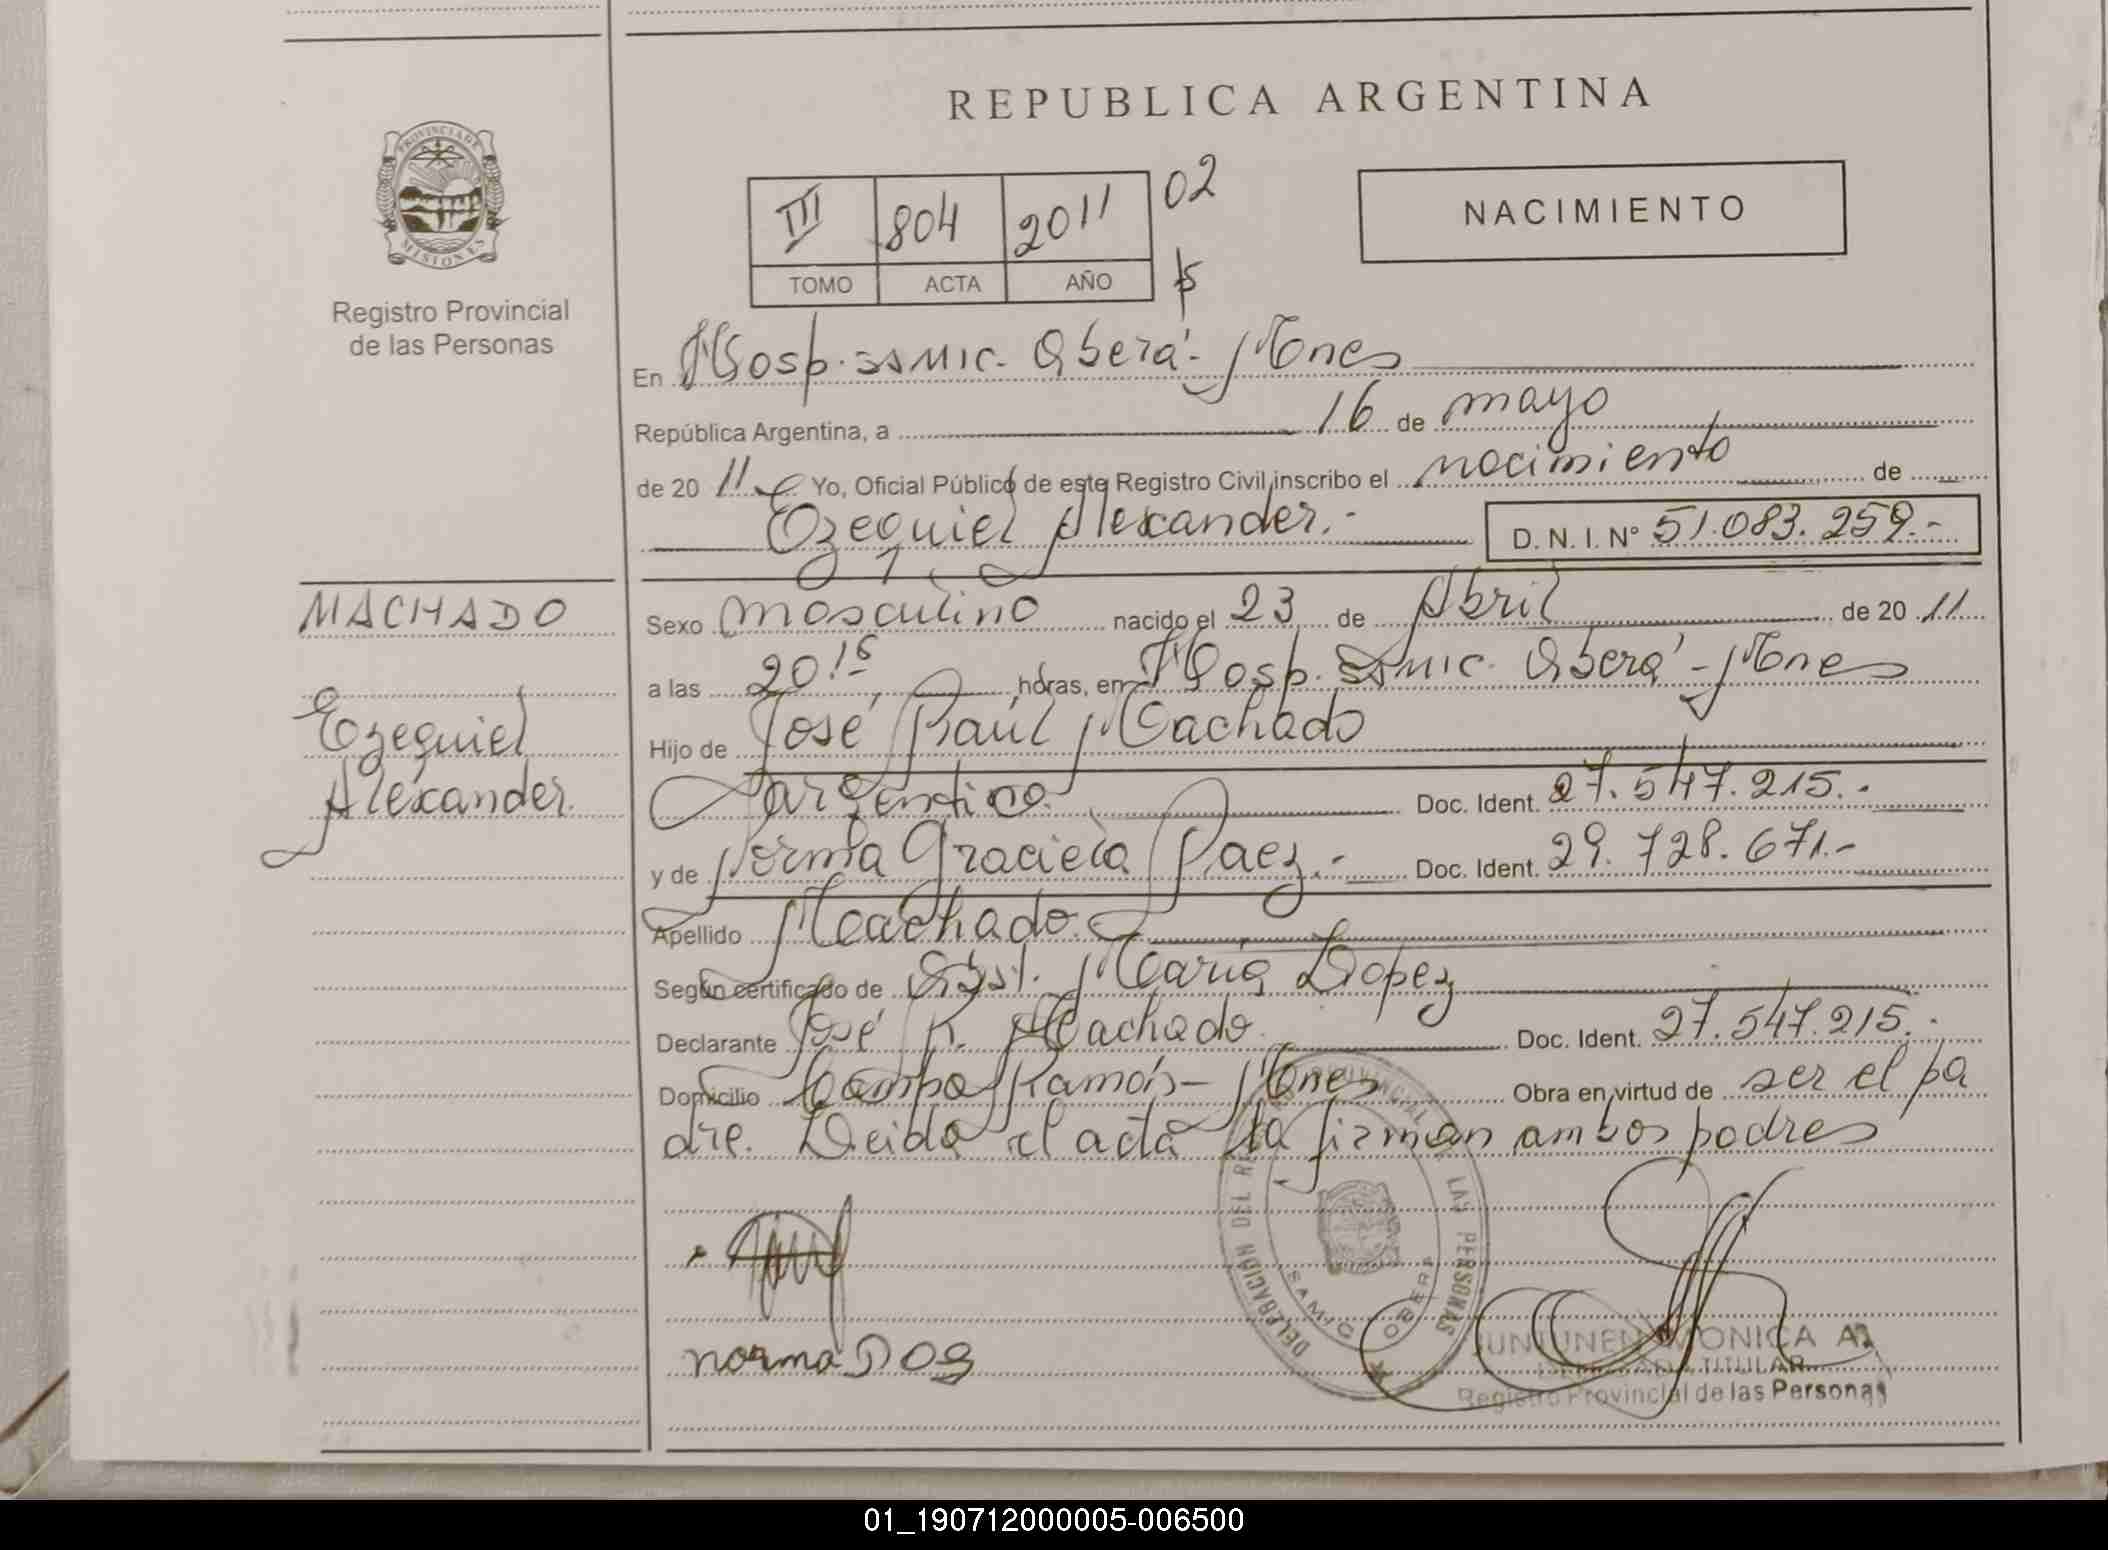 REPUBLICA ARGENTINA
PROVINCIA DE
MISIONES
Registro Provincial
de las Personas
III 804 2011 02
TOMO ACTA AÑO
NACIMIENTO
En Hosp. SAMIC. Oberá - Mnes
República Argentina, a 16 de mayo
de 20 11 Yo, Oficial Público de este Registro Civil, inscribo el nacimiento de
Ezequiel Alexander.- D. N. I. Nº 51.083.259.-
MACHADO
Ezequiel
Alexander.
Sexo masculino nacido el 23 de Abril de 20 11
a las 20:15 horas, en Hosp. SAMIC. Oberá - Mnes
Hijo de José Raúl Machado
Argentino. Doc. Ident. 27.547.215.-
y de Norma Graciela Paez.- Doc. Ident. 29.728.671.-
Apellido Machado.
Según certificado de Obst. María Lopez
Declarante José R. Machado. Doc. Ident. 27.547.215.-
Domicilio Campo Ramón - Mnes Obra en virtud de ser el pa
dre. Leida el acta la firman ambos padres
DELEGACION DEL PROVINCIAL LAS PERSONAS
SAMIC OBERA
norma
JUNTUNEN MONICA A.
DELEGADA TITULAR
Registro Provincial de las Personas
01_190712000005-006500